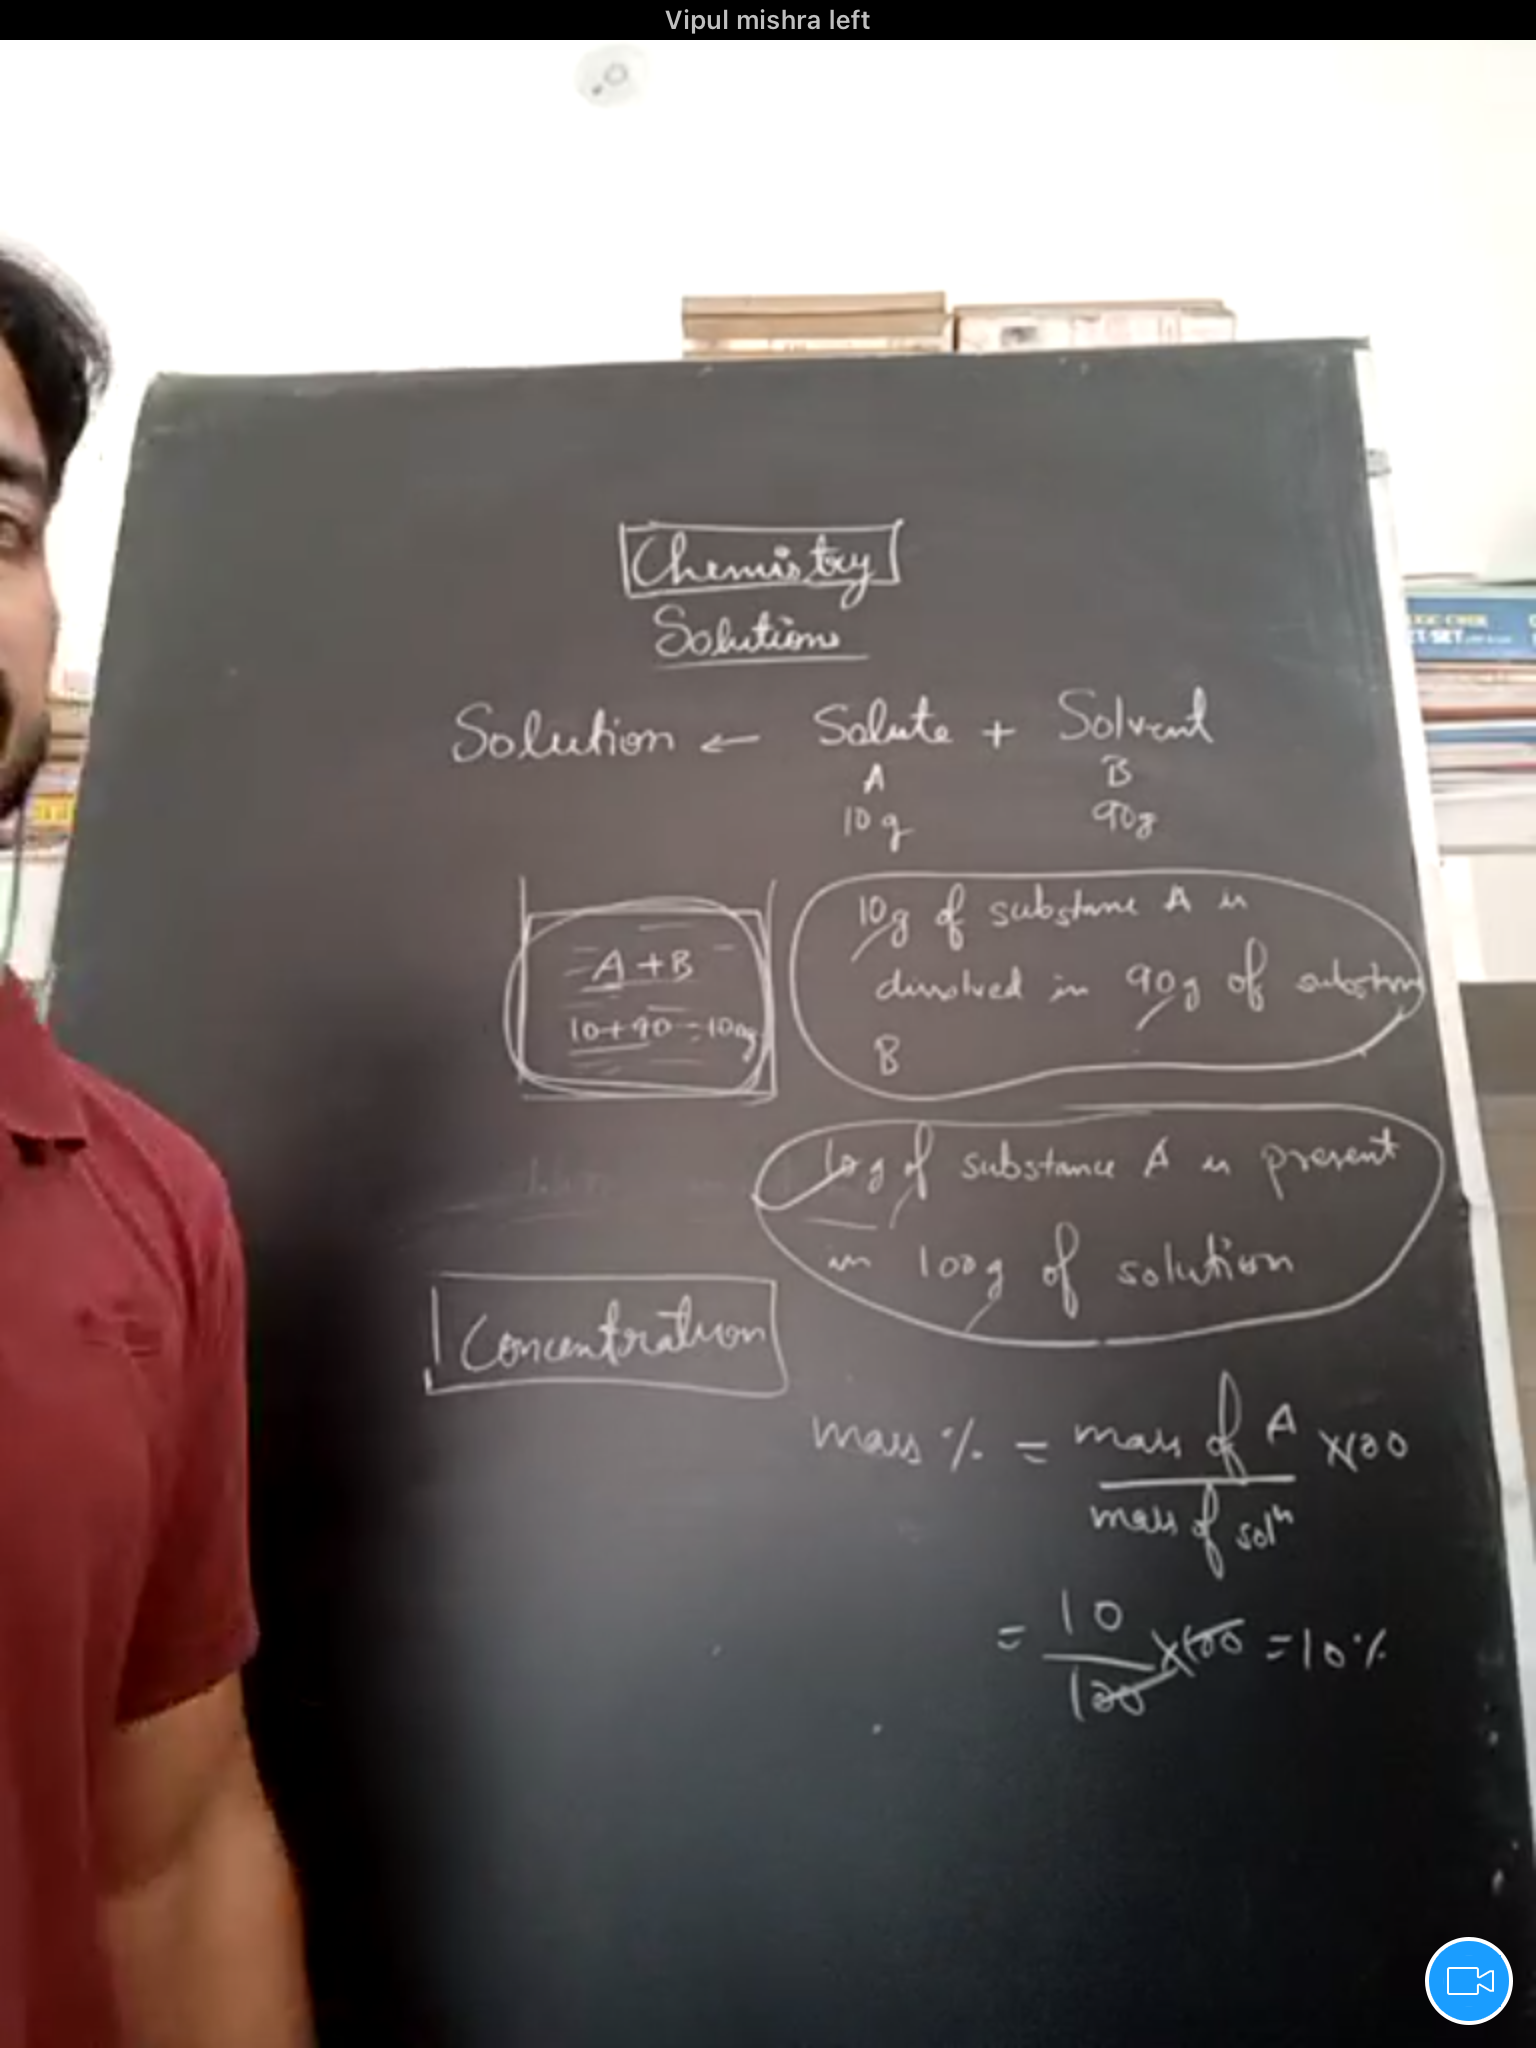 Vipul mishra left
Chemistry
Solutions
Solution ← Solute + Solvent
A B
10g 90g
10g of substance A is
dissolved in 90g of substance
B
A + B
10+90 = 100g
10g of substance A is present
in 100g of solution
Concentration
mass % = mass of A ×100
mass of solⁿ
= 10 ×100 = 10%
100